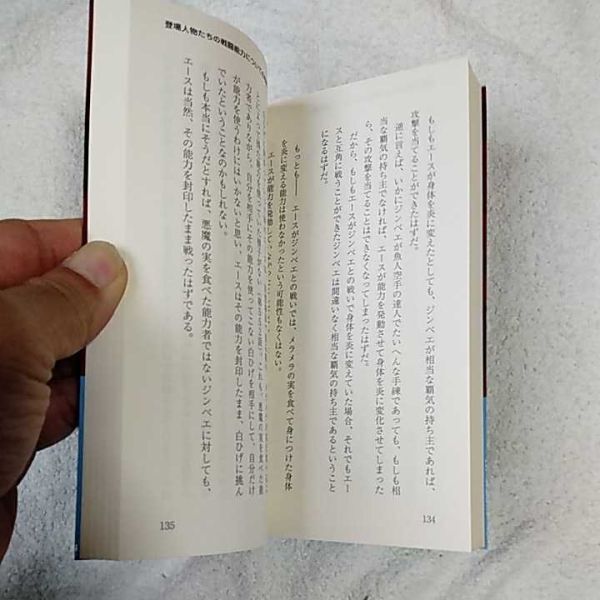 もしもエースが身体を炎に変えたとしても、ジンベエが相当な覇気の持ち主であれば、
攻撃を当てることができたはずだ。
逆に言えば、いかにジンベエが魚人空手の達人でたいへんな手練であっても、もしも相
当な覇気の持ち主でなければ、エースが能力を発動させて身体を炎に変化させてしまった
ら、その攻撃を当てることはできなくなってしまったはずだ。
だから、もしもエースがジンベエとの戦いで身体を炎に変えていた場合、それでもエー
スと互角に戦うことができたジンベエは間違いなく相当な覇気の持ち主であるということ
になるはずだ。
もっとも――、エースがジンベエとの戦いでは、メラメラの実を食べて身につけた身体
を炎に変える能力は使わなかったという可能性もなくはない。
エースが能力を発動して
134
登場人物たちの戦闘能力について
力者でありながら、自分を相手にその能力を使ってこない白ひげを相手にして、自分だけ
が能力を使うわけにはいかないと思い、エースはその能力を封印したまま、白ひげに挑ん
でいたということなのかもしれない。
もしも本当にそうだとすれば、悪魔の実を食べた能力者ではないジンベエに対しても、
エースは当然、その能力を封印したまま戦ったはずである。
135